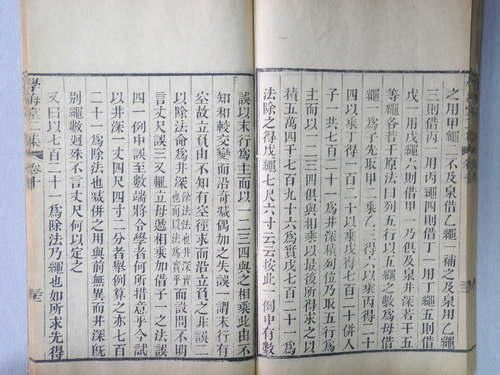 之用甲繩二不及泉借乙繩一補之及泉用乙繩
三則借丙一用丙繩四則借丁一用丁繩五則借
戊一用戊繩六則借甲一乃俱及泉井深若干五
等繩各若干原法曰列五行以五繩之數爲母借
繩一爲子先取甲二乘乙三得六以乘丙得二十
四以乘丁得一百二十以乘戊得七百二十併入
子一共七百二十一爲井深積列位乃取五行爲
主而以一二三四俱與相乘以最後所得求之以
積五萬四千七百九十六爲實戊七百二十一爲
法除之得戊繩七尺六寸云云按此一例中有數
誤以末行爲主而以一二三四與之相乘此由不
知和較交變而沿奇減偶加之失誤一謂末行有
空故立負由不知有空徑求而沿立負之非誤二
以除法命爲井深除法井深實也而以法爲實乎而設問不明
言丈尺誤三又輒立母遞相乘加借子一之法誤
四一例中誤至數端將令學者何所措意乎今試
以井深一丈四尺四寸二分者舉例算之亦七百
二十一爲除法也減併之用與前無異而井深旣
別繩數迥殊不言丈尺何以定之
又曰以七百二十一爲除法乃繩也如所求先得
學海堂二集 卷十